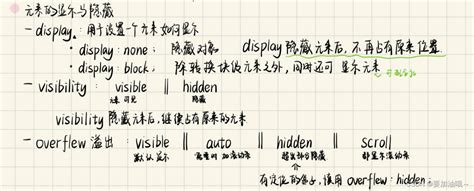 元素的显示与隐藏
— display：用于设置一个元素如何显示
· display: none； 隐藏对象 display隐藏元素后，不再占有原来位置.
· display: block， 除转换块级元素之外，同时还可显示元素
— visibility： visible || hidden
元素可见 隐藏
visibility隐藏元素后，继续占有原来的元素
— overflew 溢出： visible || auto || hidden || scroll
默认显示 需要时加滚动条 超出部分隐藏 都显示滚动条
有定位的盒子，慎用 overflew：hidden；
CSDN @要加油哦~